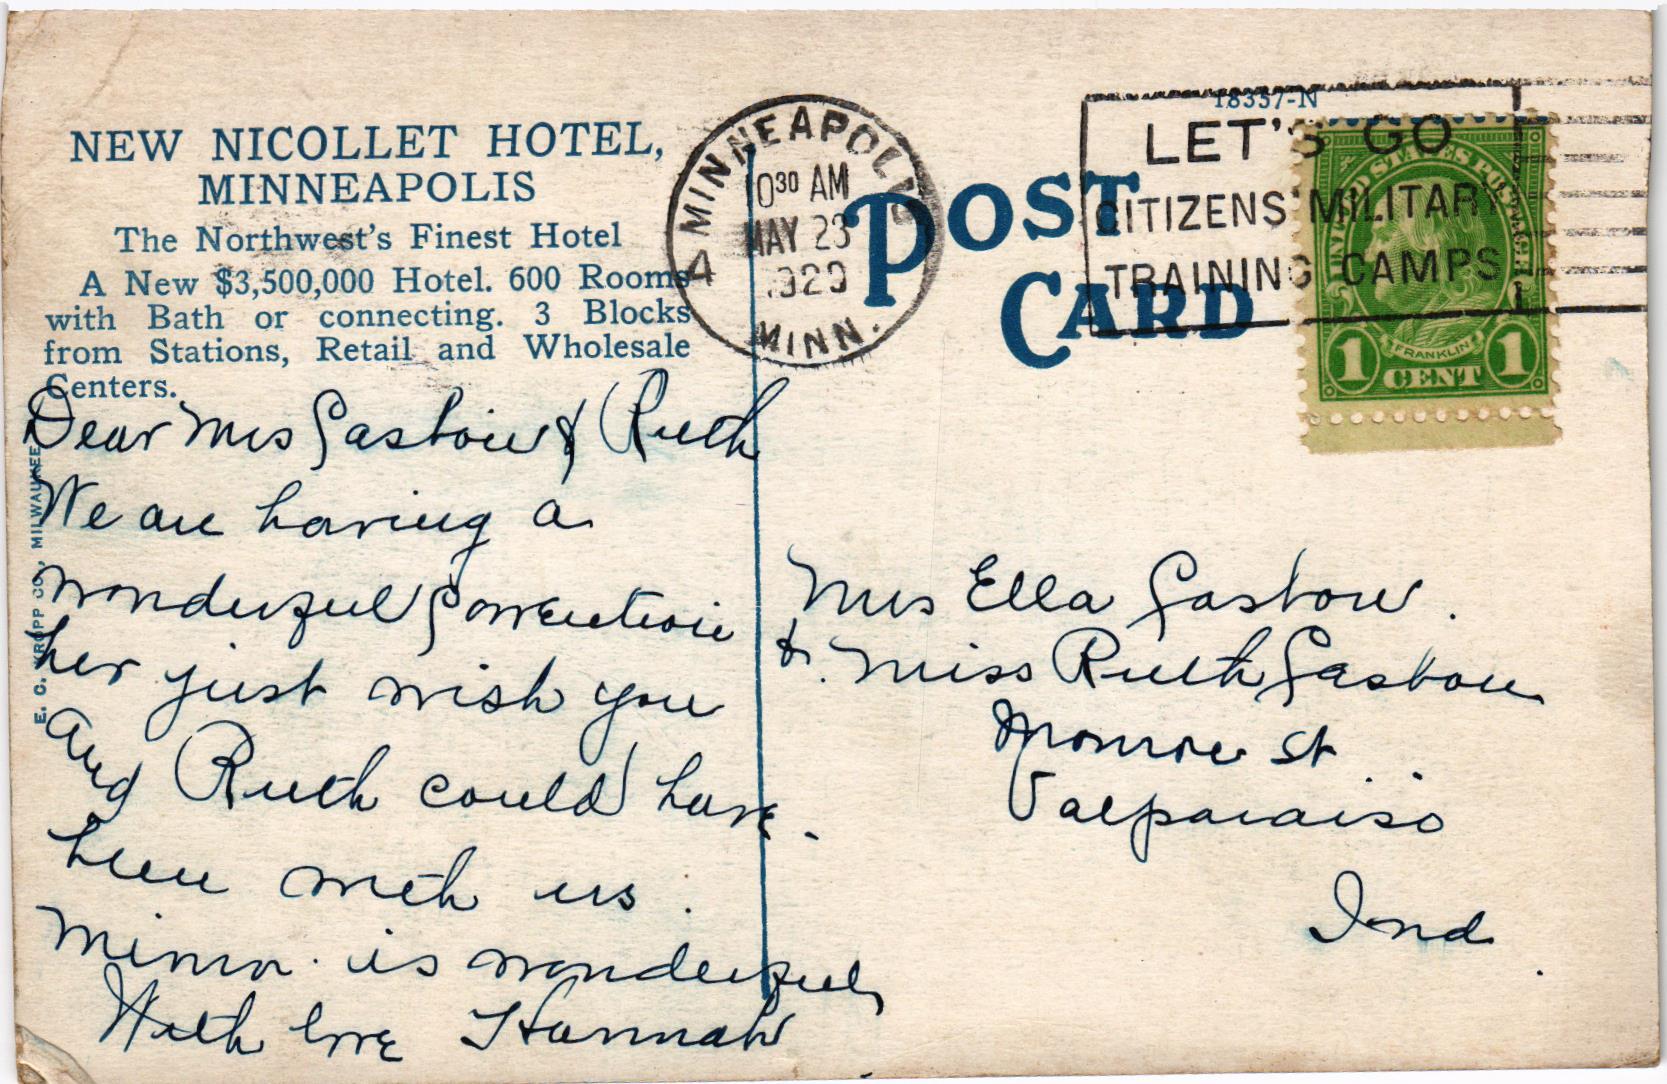 NEW NICOLLET HOTEL,
MINNEAPOLIS
The Northwest's Finest Hotel
A New $3,500,000 Hotel. 600 Rooms
with Bath or connecting. 3 Blocks
from Stations, Retail and Wholesale
Centers.
E. C. KROPP CO., MILWAUKEE
Dear Mrs Gastow & Ruth
We are having a
wonderful Convention
her just wish you
and Ruth could have
been with us.
Minn. is wonderful,
With love Hannah
MINNEAPOLIS
MINN.
4
1030 AM
MAY 23
192
18357-N
POST
CARD
LET'S GO
CITIZENS' MILITARY
TRAINING CAMPS
UNITED STATES POSTAGE
FRANKLIN
1 CENT 1
Mrs Ella Gastow.
& Miss Ruth Gastow
Monroe St
Valparaiso
Ind.